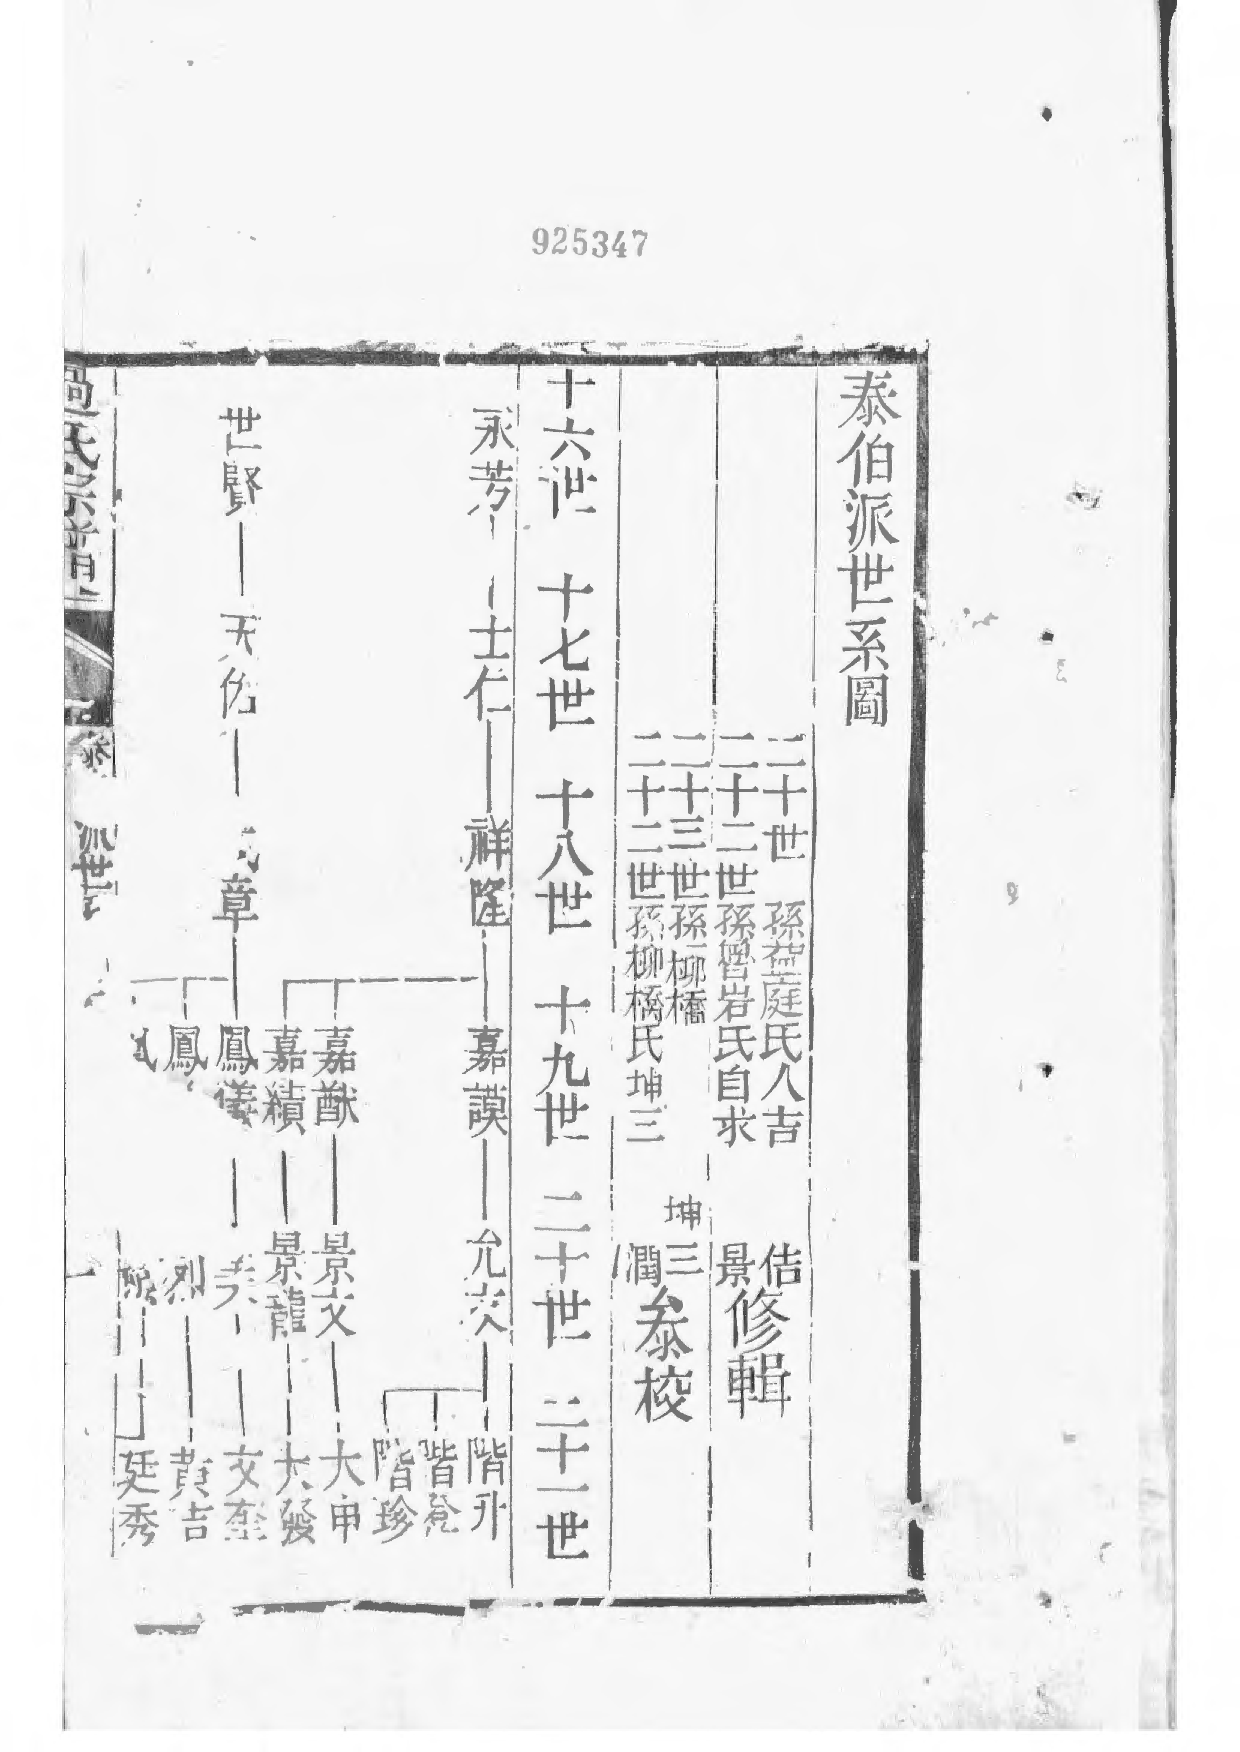 925347
泰伯派世系圖
二十世 孫益庭氏人吉 佶
二十二世孫魯岩氏自求 景
修輯
二十三世孫柳橋 坤三
二十二世孫柳橋氏坤三 潤
叅校
十六世 十七世 十八世 十九世 二十世 二十一世
永芳 士仁 祥隆 嘉謨 允文 階升
階
階珍
嘉猷 景文 大申
嘉績 景龍 大發
世賢 天佑 章 鳳儀 文奎
鳳 烈 黄吉
廷秀
過氏宗譜
派世
一